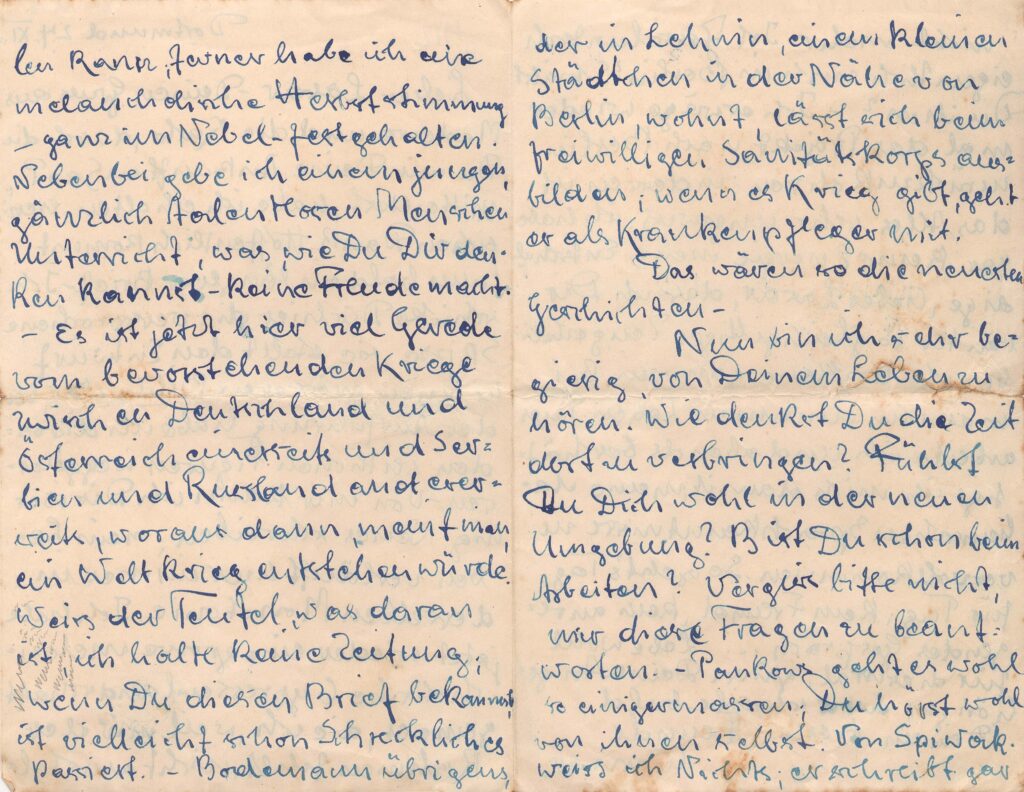 len kann, ferner habe ich eine
melancholische Herbststimmung
– ganz im Nebel – festgehalten.
Nebenbei gebe ich einem jungen,
gänzlich talentlosen Menschen
Unterricht, was wie Du Dir den-
ken kannst – keine Freude macht.
– Es ist jetzt hier viel Gerede
vom bevorstehenden Kriege
zwischen Deutschland und
Österreich einerseits und Ser-
bien und Russland anderer-
seits, woraus dann, meint man,
ein Weltkrieg entstehen würde.
Weiss der Teufel, was daran
ist, ich halte keine Zeitung;
wenn Du diesen Brief bekommst,
ist vielleicht schon Schreckliches
passiert. – Bodemann übrigens,
der in Lehnin, einem kleinen
Städtchen in der Nähe von
Berlin, wohnt, lässt sich beim
freiwilligen Sanitätskorps aus-
bilden; wenn es Krieg gibt, geht
er als Krankenpfleger mit.
Das wären so die neuesten
Geschichten –
Nun bin ich sehr be-
gierig, von Deinem Leben zu
hören. Wie denkst Du die Zeit
dort zu verbringen? Fühlst
Du Dich wohl in der neuen
Umgebung? Bist Du schon beim
Arbeiten? Vergiss bitte nicht,
mir diese Fragen zu beant-
worten. – Pankows geht es wohl
so einigermassen, Du hörst wohl
von ihnen selbst. Von Spiwak
weiss ich Nichts; er schreibt gar